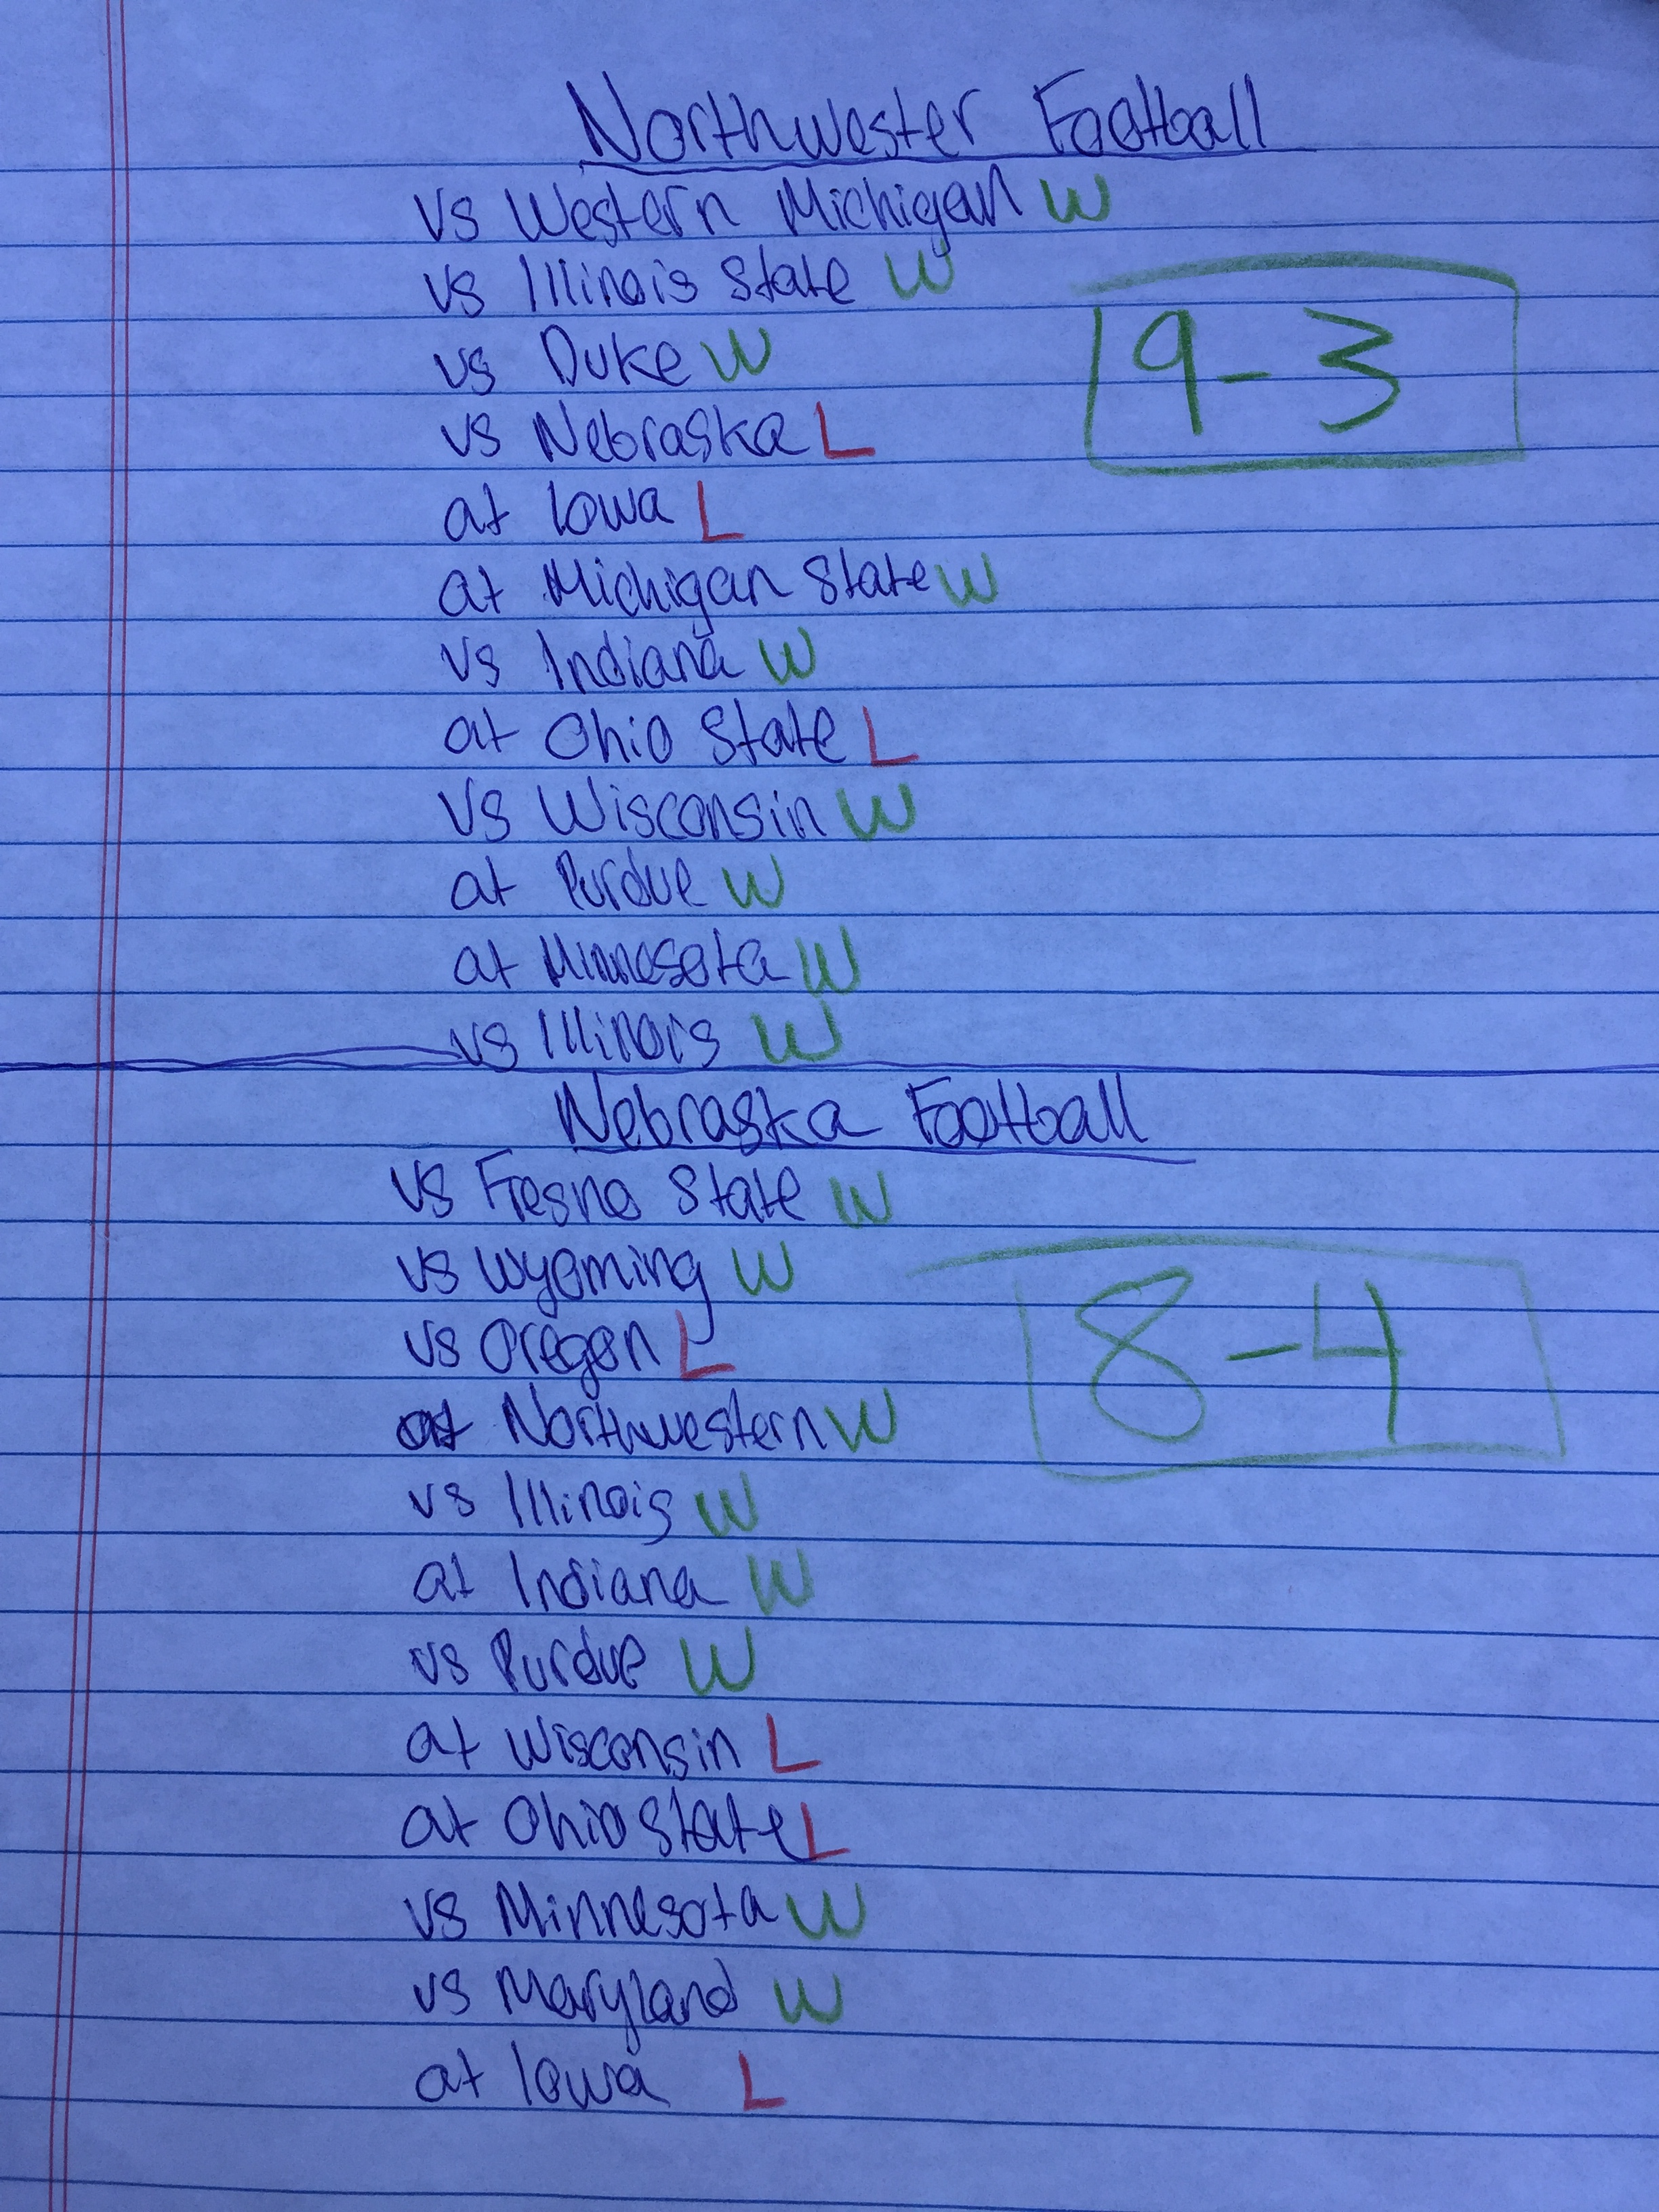 Northwester Football
vs Western Michigan W
vs Illinois State W
9-3
vs Duke W
vs Nebraska L
at Iowa L
at Michigan State W
vs Indiana W
at Ohio State L
vs Wisconsin W
at Purdue W
at Minnesota W
vs Illinois W
Nebraska Football
vs Fresno State W
vs Wyoming W
8-4
vs Oregon L
at Northwestern W
vs Illinois W
at Indiana W
vs Purdue W
at Wisconsin L
at Ohio State L
vs Minnesota W
vs Maryland W
at Iowa L